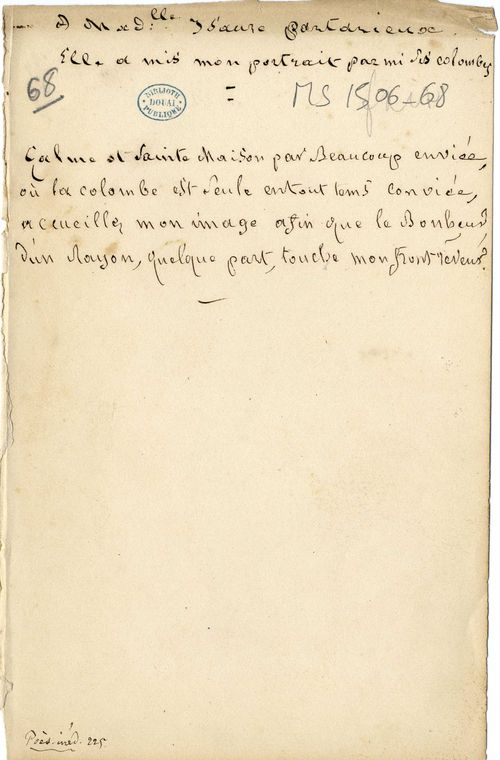 A Mad.lle Isaure partarieuxe.
Elle a mis mon portrait parmi ses colombes
68
BIBLIOTH
DOUAI
PUBLIQUE
=
MS 1506-68
Calme et sainte Maison par Beaucoup enviée,
où la colombe est seule entout tems conviée,
accueillez mon image afin que le Bonheur,
d'un Rayon, quelque part, touche mon front rêveur.
Poés. inéd. 225